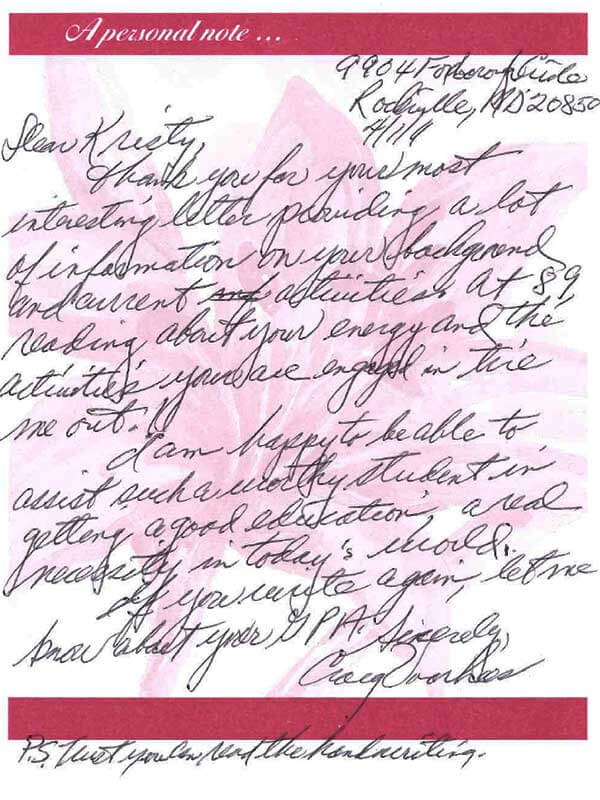 A personal note ...
9904 Foxborough Circle
Rockville, MD 20850
4/1/11
Dear Kristy,
Thank you for your most
interesting letter providing a lot
of information on your background
and current and activities. At 89,
reading about your energy and the
activities you are engaged in tire
me out!
I am happy to be able to
assist such a worthy student in
getting a good education, a real
necessity in today's world.
If you write again, let me
know about your GPA. Sincerely,
Craig
P.S. Trust you can read the handwriting.